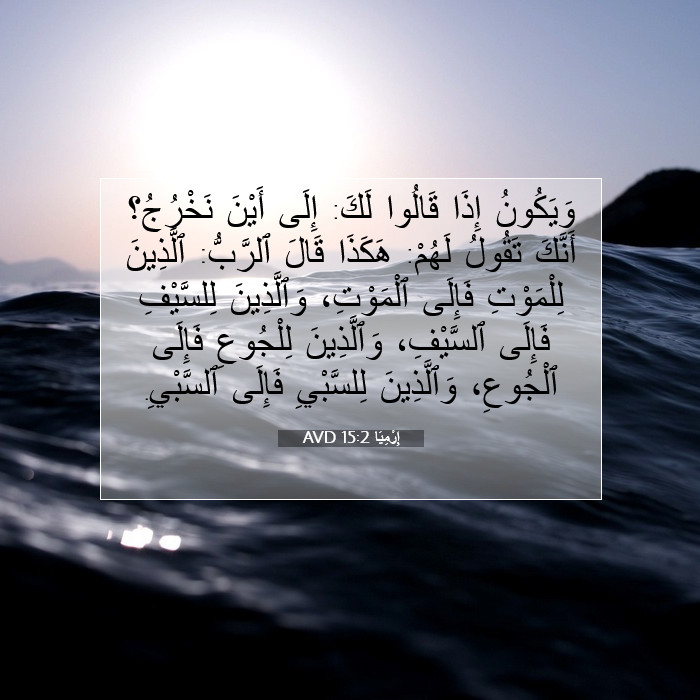 وَيَكُونُ إِذَا قَالُوا لَكَ: إِلَى أَيْنَ نَخْرُجُ؟
أَنَّكَ تَقُولُ لَهُمْ: هَكَذَا قَالَ ٱلرَّبُّ: ٱلَّذِينَ
لِلْمَوْتِ فَإِلَى ٱلْمَوْتِ، وَٱلَّذِينَ لِلسَّيْفِ
فَإِلَى ٱلسَّيْفِ، وَٱلَّذِينَ لِلْجُوعِ فَإِلَى
ٱلْجُوعِ، وَٱلَّذِينَ لِلسَّبْيِ فَإِلَى ٱلسَّبْيِ.
إِرْمِيَا 15:2 AVD